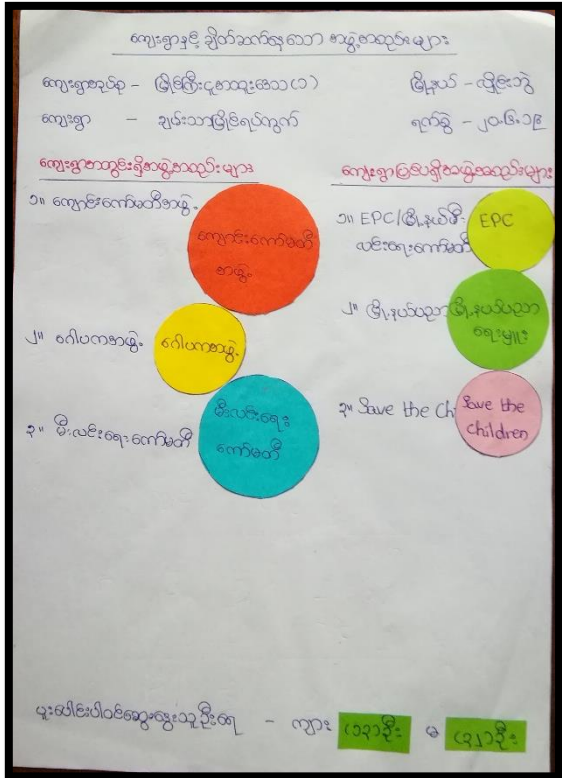 ကျေးရွာနှင့် ချိတ်ဆက်နေသော အဖွဲ့အစည်းများ
ကျေးရွာအုပ်စု - မြိုင်ကြီးငူအထူးဒေသ(၁)
မြို့နယ် - လှိုင်းဘွဲ
ကျေးရွာ - ချမ်းသာမြိုင်ရပ်ကွက်
ရက်စွဲ - ၂၀.၆.၁၉
ကျေးရွာအတွင်းရှိအဖွဲ့အစည်းများ
၁။ ကျောင်းကော်မတီအဖွဲ့
ကျောင်းကော်မတီ
အဖွဲ့
၂။ ဂေါပကအဖွဲ့
ဂေါပကအဖွဲ့
၃။ မီးလင်းရေးကော်မတီ
မီးလင်းရေး
ကော်မတီ
ကျေးရွာပြင်ပရှိအဖွဲ့အစည်းများ
၁။ EPC/မြို့နယ်မီး
လင်းရေးကော်မတီ
EPC
၂။ မြို့နယ်ပညာ
မြို့နယ်ပညာ
ရေးမှူး
၃။ Save the Ch
Save the
children
ပူးပေါင်းပါဝင်ဆွေးနွေးသူဦးရေ - ကျား (၁၃)ဦး မ (၃၂)ဦး